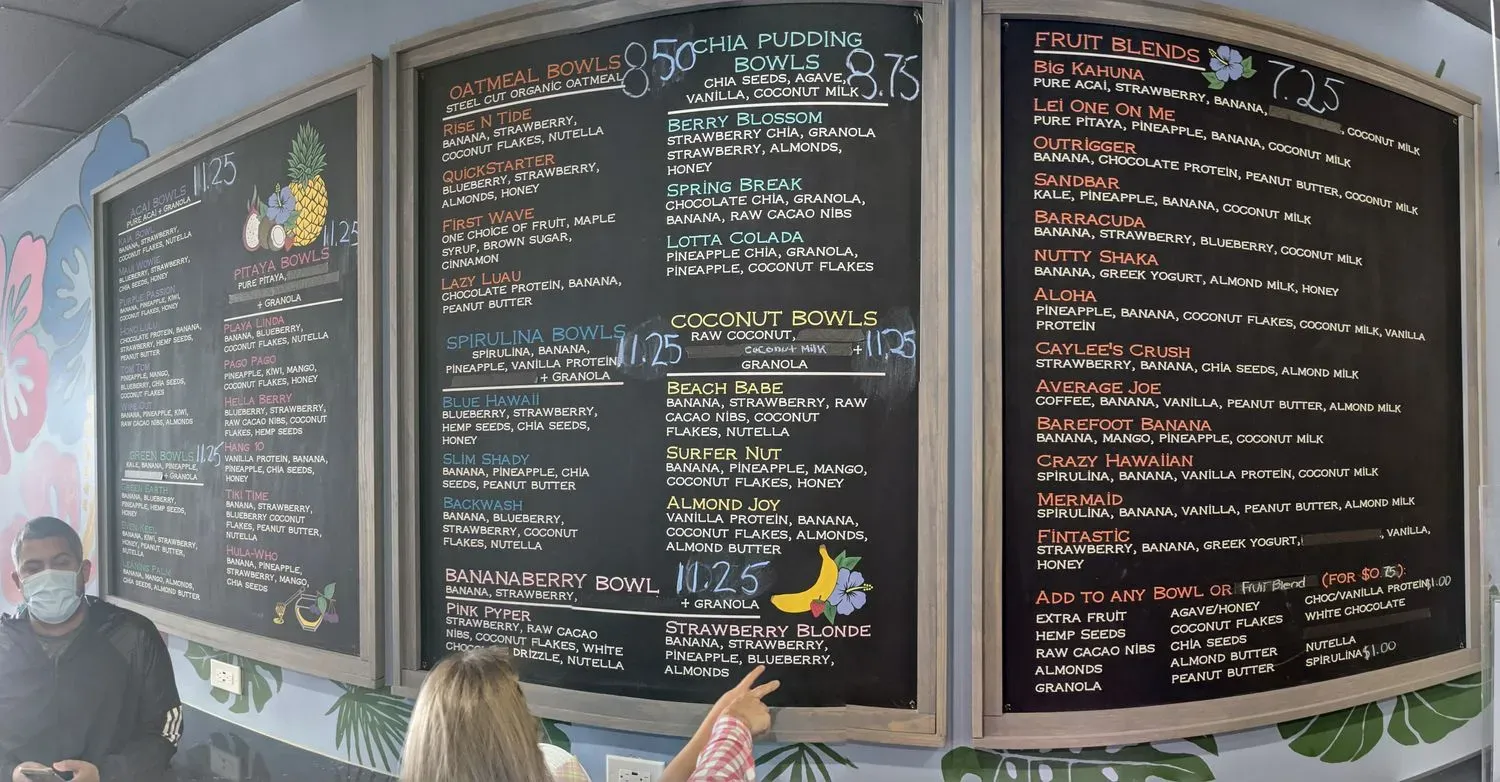 ACAI BOWLS 11.25
PURE ACAI + GRANOLA
KAIA BOWL
BANANA, STRAWBERRY,
COCONUT FLAKES, NUTELLA
MAUI WOWIE
BLUEBERRY, STRAWBERRY,
CHIA SEEDS, HONEY
PURPLE PASSION
BANANA, PINEAPPLE, KIWI,
COCONUT FLAKES, HONEY
HONO LULU
CHOCOLATE PROTEIN, BANANA,
STRAWBERRY, HEMP SEEDS,
PEANUT BUTTER
TOM TOM
PINEAPPLE, MANGO,
BLUEBERRY, CHIA SEEDS,
COCONUT FLAKES
WIPE OUT
BANANA, PINEAPPLE, KIWI,
RAW CACAO NIBS, ALMONDS
GREEN BOWLS 11.25
KALE, BANANA, PINEAPPLE,
+ GRANOLA
GREEN EARTH
BANANA, BLUEBERRY,
PINEAPPLE, HEMP SEEDS,
HONEY
EVEN KEEL
BANANA, KIWI, STRAWBERRY,
HONEY, PEANUT BUTTER,
NUTELLA
LEANING PALM
BANANA, MANGO, ALMONDS,
CHIA SEEDS, ALMOND BUTTER
11.25
PITAYA BOWLS
PURE PITAYA,
+ GRANOLA
PLAYA LINDA
BANANA, BLUEBERRY,
COCONUT FLAKES, NUTELLA
PAGO PAGO
PINEAPPLE, KIWI, MANGO,
COCONUT FLAKES, HONEY
HELLA BERRY
BLUEBERRY, STRAWBERRY,
RAW CACAO NIBS, COCONUT
FLAKES, HEMP SEEDS
HANG 10
VANILLA PROTEIN, BANANA,
PINEAPPLE, CHIA SEEDS,
HONEY
TIKI TIME
BANANA, STRAWBERRY,
BLUEBERRY COCONUT
FLAKES, PEANUT BUTTER,
NUTELLA
HULA-WHO
BANANA, PINEAPPLE,
STRAWBERRY, MANGO,
CHIA SEEDS
OATMEAL BOWLS 8.50
STEEL CUT ORGANIC OATMEAL
RISE N TIDE
BANANA, STRAWBERRY,
COCONUT FLAKES, NUTELLA
QUICKSTARTER
BLUEBERRY, STRAWBERRY,
ALMONDS, HONEY
FIRST WAVE
ONE CHOICE OF FRUIT, MAPLE
SYRUP, BROWN SUGAR,
CINNAMON
LAZY LUAU
CHOCOLATE PROTEIN, BANANA,
PEANUT BUTTER
SPIRULINA BOWLS
SPIRULINA, BANANA, 11.25
PINEAPPLE, VANILLA PROTEIN
+ GRANOLA
BLUE HAWAII
BLUEBERRY, STRAWBERRY,
HEMP SEEDS, CHIA SEEDS,
HONEY
SLIM SHADY
BANANA, PINEAPPLE, CHIA
SEEDS, PEANUT BUTTER
BACKWASH
BANANA, BLUEBERRY,
STRAWBERRY, COCONUT
FLAKES, NUTELLA
CHIA PUDDING
BOWLS 8.75
CHIA SEEDS, AGAVE,
VANILLA, COCONUT MILK
BERRY BLOSSOM
STRAWBERRY CHIA, GRANOLA
STRAWBERRY, ALMONDS,
HONEY
SPRING BREAK
CHOCOLATE CHIA, GRANOLA,
BANANA, RAW CACAO NIBS
LOTTA COLADA
PINEAPPLE CHIA, GRANOLA,
PINEAPPLE, COCONUT FLAKES
COCONUT BOWLS
RAW COCONUT,
COCONUT MILK + 11.25
GRANOLA
BEACH BABE
BANANA, STRAWBERRY, RAW
CACAO NIBS, COCONUT
FLAKES, NUTELLA
SURFER NUT
BANANA, PINEAPPLE, MANGO,
COCONUT FLAKES, HONEY
ALMOND JOY
VANILLA PROTEIN, BANANA,
COCONUT FLAKES, ALMONDS,
ALMOND BUTTER
BANANABERRY BOWL 11.25
BANANA, STRAWBERRY,
+ GRANOLA
PINK PYPER
STRAWBERRY, RAW CACAO
NIBS, COCONUT FLAKES, WHITE
DRIZZLE, NUTELLA
STRAWBERRY BLONDE
BANANA, STRAWBERRY,
PINEAPPLE, BLUEBERRY,
ALMONDS
FRUIT BLENDS 7.25
BIG KAHUNA
PURE ACAI, STRAWBERRY, BANANA, , COCONUT MILK
LEI ONE ON ME
PURE PITAYA, PINEAPPLE, BANANA, COCONUT MILK
OUTRIGGER
BANANA, CHOCOLATE PROTEIN, PEANUT BUTTER, COCONUT MILK
SANDBAR
KALE, PINEAPPLE, BANANA, COCONUT MILK
BARRACUDA
BANANA, STRAWBERRY, BLUEBERRY, COCONUT MILK
NUTTY SHAKA
BANANA, GREEK YOGURT, ALMOND MILK, HONEY
ALOHA
PINEAPPLE, BANANA, COCONUT FLAKES, COCONUT MILK, VANILLA
PROTEIN
CAYLEE'S CRUSH
STRAWBERRY, BANANA, CHIA SEEDS, ALMOND MILK
AVERAGE JOE
COFFEE, BANANA, VANILLA, PEANUT BUTTER, ALMOND MILK
BAREFOOT BANANA
BANANA, MANGO, PINEAPPLE, COCONUT MILK
CRAZY HAWAIIAN
SPIRULINA, BANANA, VANILLA PROTEIN, COCONUT MILK
MERMAID
SPIRULINA, BANANA, VANILLA, PEANUT BUTTER, ALMOND MILK
FINTASTIC
STRAWBERRY, BANANA, GREEK YOGURT, , VANILLA,
HONEY
ADD TO ANY BOWL OR Fruit Blend (FOR $0.75):
EXTRA FRUIT
HEMP SEEDS
RAW CACAO NIBS
ALMONDS
GRANOLA
AGAVE/HONEY
COCONUT FLAKES
CHIA SEEDS
ALMOND BUTTER
PEANUT BUTTER
CHOC/VANILLA PROTEIN $1.00
WHITE CHOCOLATE
NUTELLA
SPIRULINA $1.00